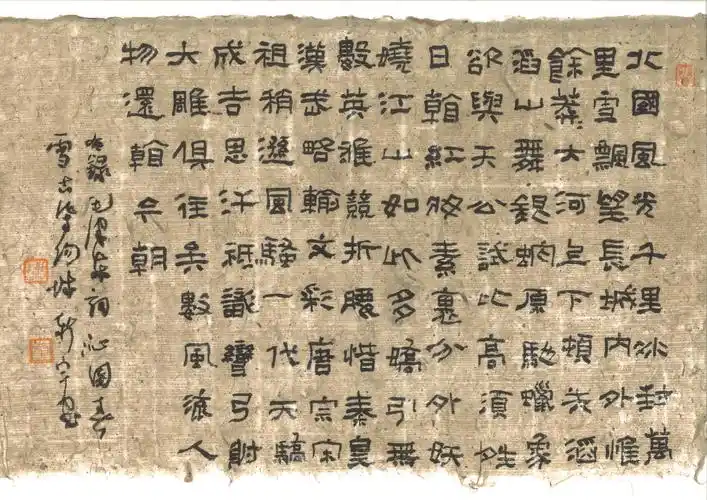 北國風光千里冰封萬
里雪飄望長城內外惟
餘莽大河上下頓失滔
滔山舞銀蛇原馳蠟象
欲與天公試比高須晴
日看紅妝素裹分外妖
嬈江山如此多嬌引無
數英雄競折腰惜秦皇
漢武略輸文彩唐宗宋
祖稍遜風騷一代天驕
成吉思汗祇識彎弓射
大雕俱往矣數風流人
物還看今朝
右錄毛澤東詞沁園春
雪